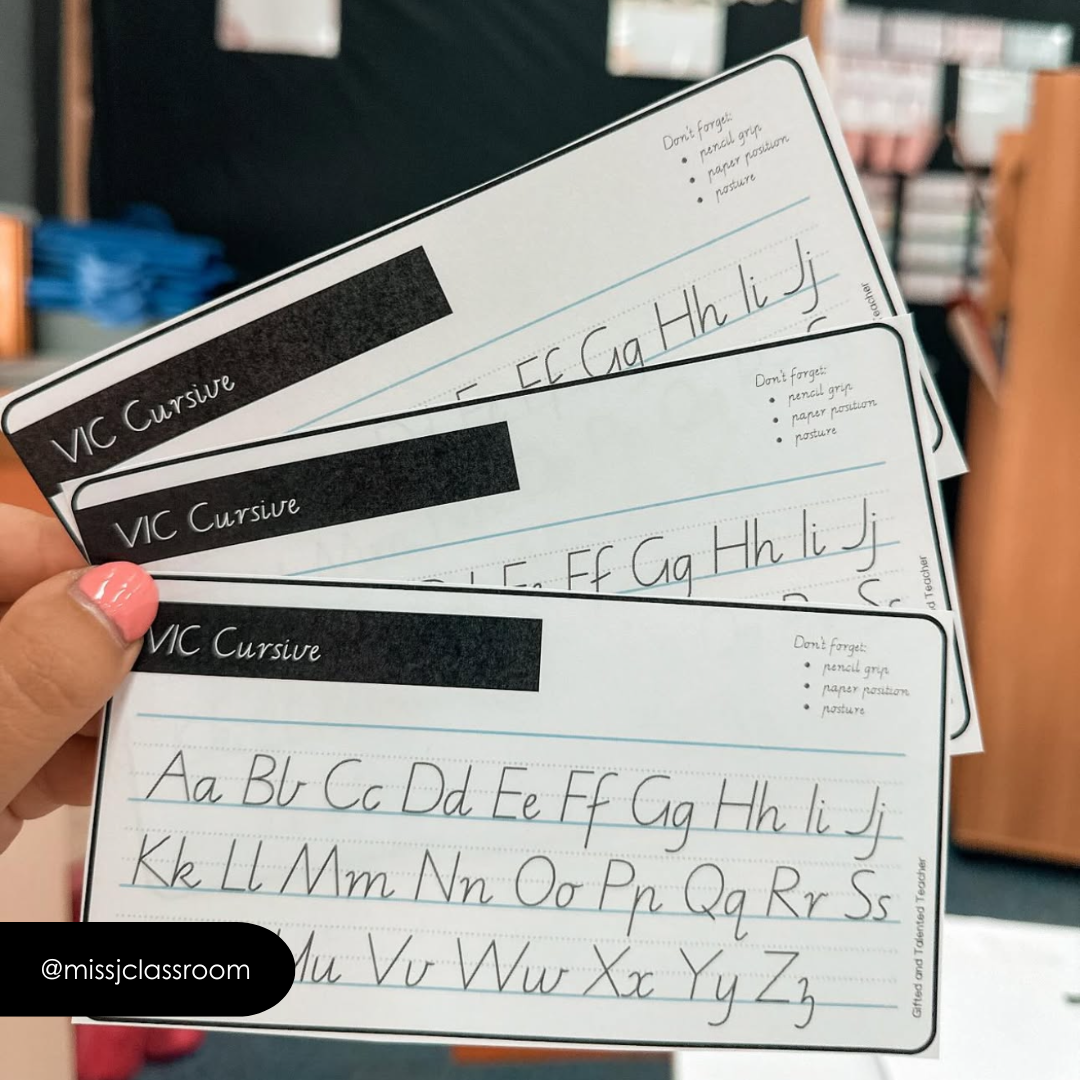 Don't forget:
• pencil grip
• paper position
• posture
VIC Cursive
Gg Hh Ii Jj
Don't forget:
• pencil grip
• paper position
• posture
VIC Cursive
Ff Gg Hh Ii Jj
Teacher
VIC Cursive
Don't forget:
• pencil grip
• paper position
• posture
Aa Bb Cc Dd Ee Ff Gg Hh Ii Jj
Kk Ll Mm Nn Oo Pp Qq Rr Ss
Uu Vv Ww Xx Yy Zz
Gifted and Talented Teacher
@missjclassroom